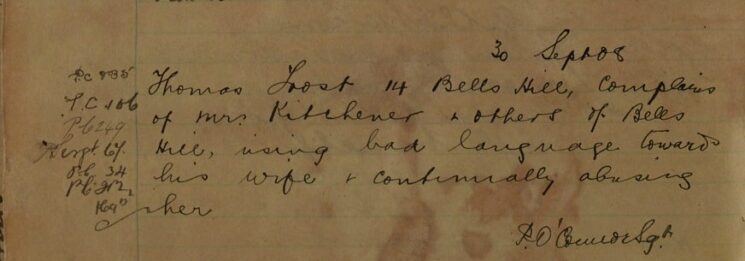 30 Sept 08
Pc 835
Thomas Frost 14 Bells Hill, Complains
P.C 106
of Mrs Kitchener & others of Bells
Pc 249
Hill, using bad language towards
Sergt 67
his wife & continually abusing
Pc 34
her
P. O'Connor Sgt